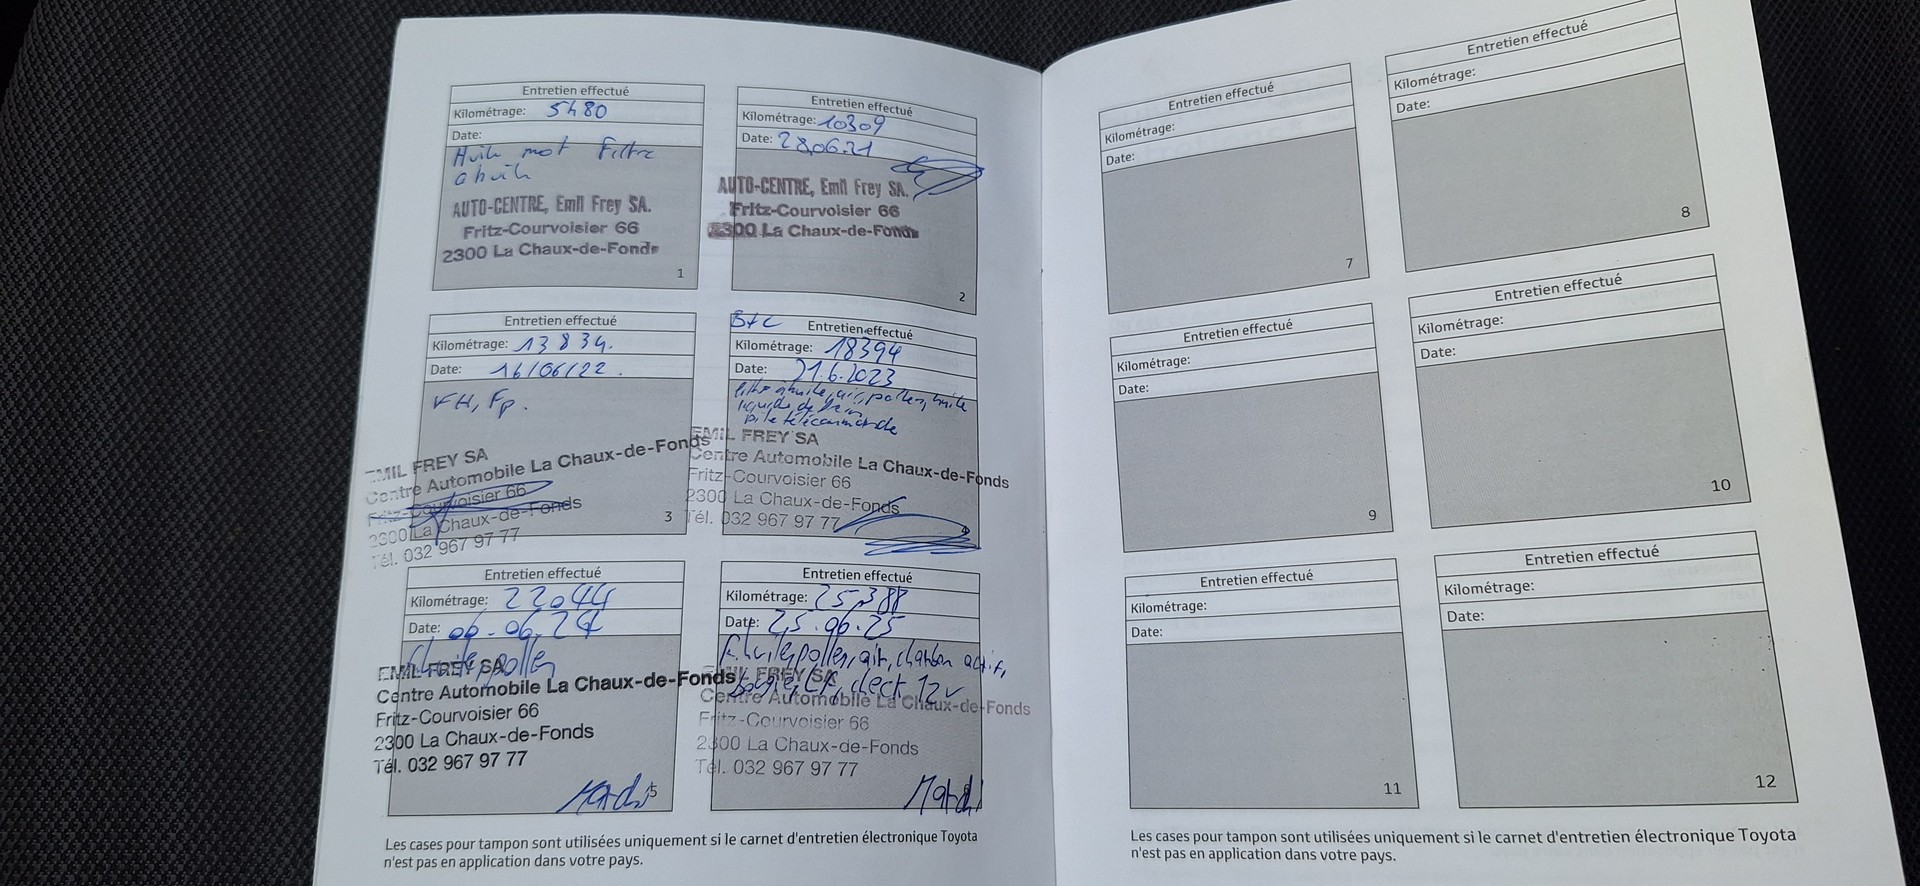 Entretien effectué
Kilométrage: 5480
Date:
Huile mot Filtre
a huile
AUTO-CENTRE, Emil Frey SA.
Fritz-Courvoisier 66
2300 La Chaux-de-Fonds
1
Entretien effectué
Kilométrage: 10309
Date: 28.06.21
AUTO-CENTRE, Emil Frey SA.
Fritz-Courvoisier 66
2300 La Chaux-de-Fonds
2
Entretien effectué
Kilométrage: 13834.
Date: 16/06/22.
VH, Fp.
EMIL FREY SA
Centre Automobile La Chaux-de-Fonds
Fritz-Courvoisier 66
2300 La Chaux-de-Fonds
Tél. 032 967 97 77
3
B+C
Entretien effectué
Kilométrage: 18394
Date: 21.6.2023
filtre à huile, air, pollen, huile
liquide de frein
pile télécommande
EMIL FREY SA
Centre Automobile La Chaux-de-Fonds
Fritz-Courvoisier 66
2300 La Chaux-de-Fonds
Tél. 032 967 97 77
4
Entretien effectué
Kilométrage: 22044
Date: 06.06.24
F. huile, pollen
EMIL FREY SA
Centre Automobile La Chaux-de-Fonds
Fritz-Courvoisier 66
2300 La Chaux-de-Fonds
Tél. 032 967 97 77
5
Entretien effectué
Kilométrage: 25388
Date: 25.06.25
F. huile, pollen, air, charbon actif,
bougie, LF, 12v
EMIL FREY SA
Centre Automobile La Chaux-de-Fonds
Fritz-Courvoisier 66
2300 La Chaux-de-Fonds
Tél. 032 967 97 77
Les cases pour tampon sont utilisées uniquement si le carnet d'entretien électronique Toyota
n'est pas en application dans votre pays.
Entretien effectué
Kilométrage:
Date:
7
Entretien effectué
Kilométrage:
Date:
8
Entretien effectué
Kilométrage:
Date:
9
Entretien effectué
Kilométrage:
Date:
10
Entretien effectué
Kilométrage:
Date:
11
Entretien effectué
Kilométrage:
Date:
12
Les cases pour tampon sont utilisées uniquement si le carnet d'entretien électronique Toyota
n'est pas en application dans votre pays.